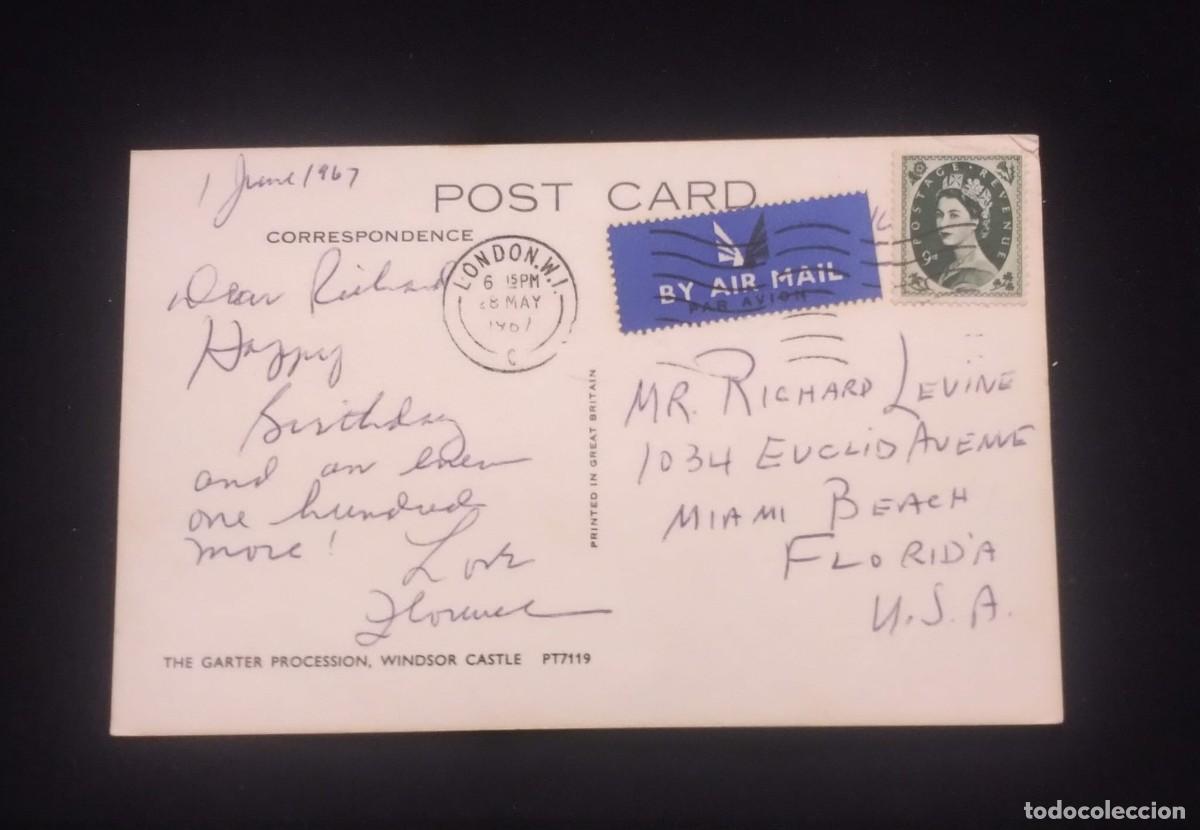 1 June 1967
POST CARD
CORRESPONDENCE
Dear Richard
Happy
Birthday
and an even
one hundred
more!
Love
Florence
THE GARTER PROCESSION, WINDSOR CASTLE PT7119
PRINTED IN GREAT BRITAIN
LONDON.W.1.
6 15PM
28 MAY
1967
C
BY AIR MAIL
PAR AVION
POSTAGE REVENUE
9D
MR. RICHARD LEVINE
1034 EUCLID AVENUE
MIAMI BEACH
FLORIDA
U.S.A.
todocoleccion